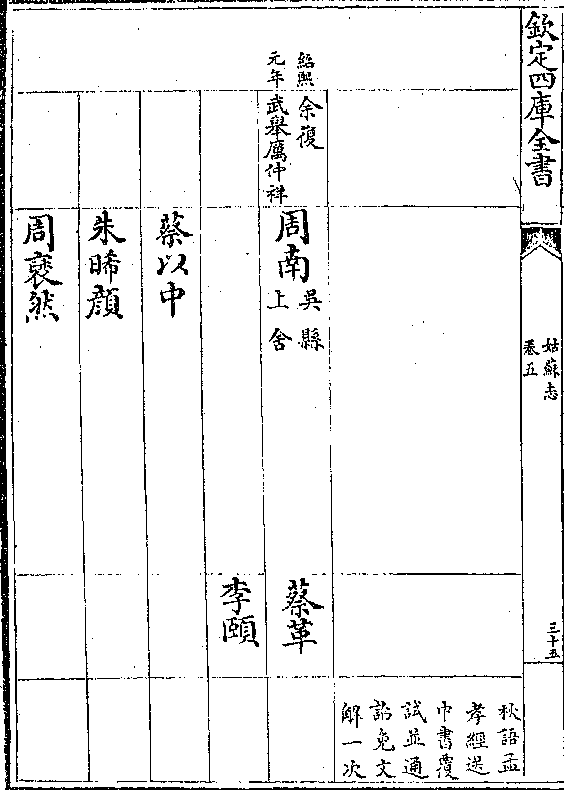 欽定四庫全書
姑蘇志
卷五
三十五
秋語孟
孝經送
中書覆
試並通
詔免文
解一次
紹熙
元年
余復
武舉厲仲祥
周南
吳縣
上舍
蔡革
李頤
蔡以中
朱晞顏
周褒然